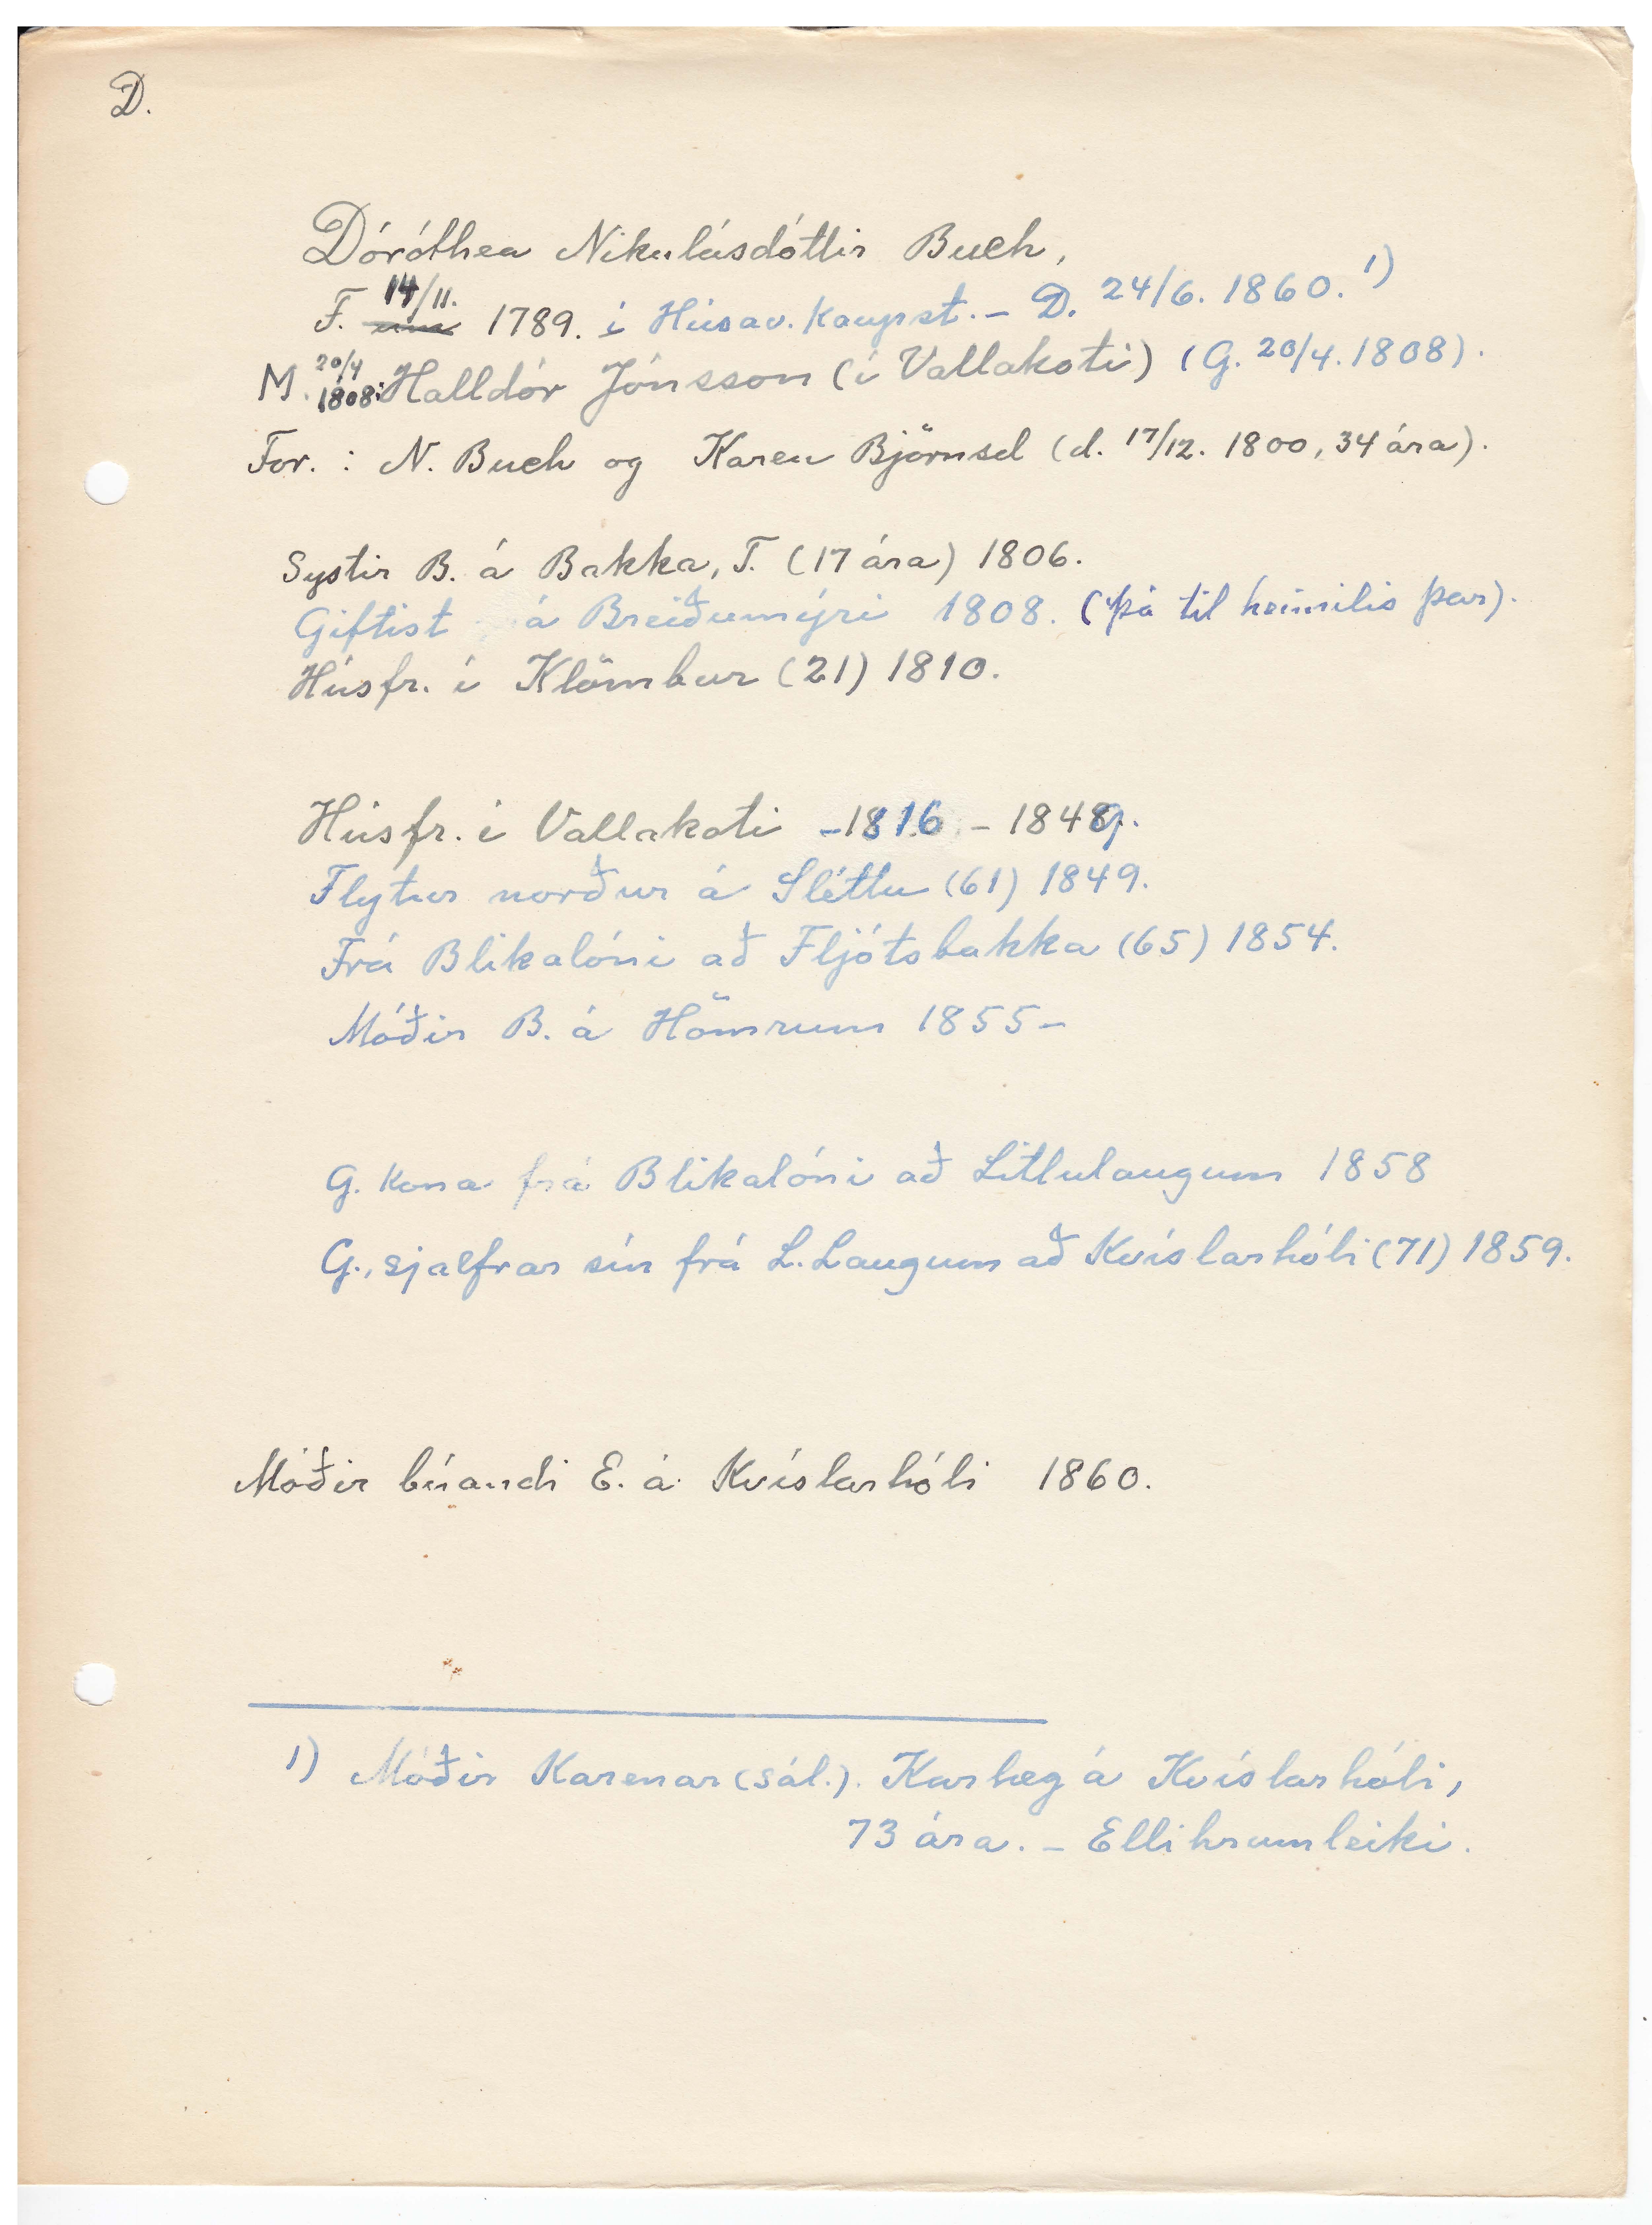 D.
Dóróthea Nikulásdóttir Buch,
F. 14/11. 1789. í Húsav. Kaupst. – D. 24/6. 1860. 1)
M. 20/4 1808: Halldór Jónsson (í Vallakoti) (G. 20/4. 1808).
For. : N. Buch og Karen Björnsd (d. 17/12. 1800, 34 ára).
Systir B. á Bakka, T. (17 ára) 1806.
Giftist á Breiðumýri 1808. (þá til heimilis þar).
Húsfr. í Klömbur (21) 1810.
Húsfr. í Vallakoti –1816 – 1849.
Flytur norður á Sléttu (61) 1849.
Frá Blikalóni að Fljótsbakka (65) 1854.
Móðir B. á Hömrum 1855–
G. kona frá Blikalóni að Litlulaugum 1858
G., sjalfrar sín frá L. Laugum að Kvíslarhóli (71) 1859.
Móðir búandi E. á Kvíslarhóli 1860.
1) Móðir Karenar (sál.). Karlæg á Kvíslarhóli,
73 ára. – Ellihrumleiki.